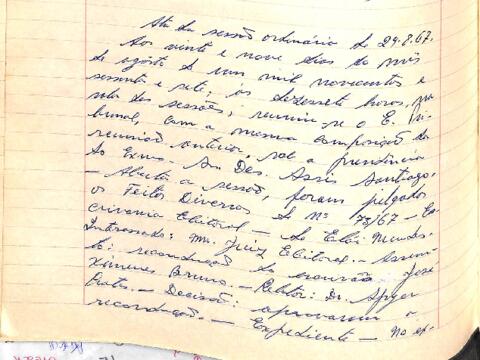 Ata da sessão ordinária de 29.8.67.
Aos vinte e nove dias do mês
de agosto de um mil novecentos e
sessenta e sete, às dezessete horas, na
sala das sessões, reuniu-se o E. Tri-
bunal, com a mesma composição da
reunião anterior, sob a presidência
do Exmo. Sr. Des. Assis Santiago.
— Aberta a sessão, foram julgados
os Feitos Diversos de nº 73/67 — Es-
crivania Eleitoral — de Elói Mendes.
Interessado: MM. Juiz Eleitoral. — Assun-
to: recondução do escrivão José
Ximenes Bruno. — Relator: Dr.
Prates. — Decisão: aprovaram a
recondução. — Expediente — No ex-